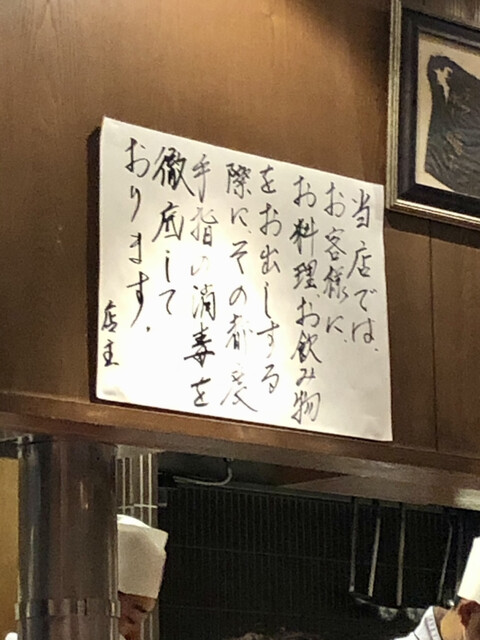 当店では、
お客様に、
お料理、お飲み物
をお出しする
際に、その都度
手指の消毒を
徹底して
おります。
店主